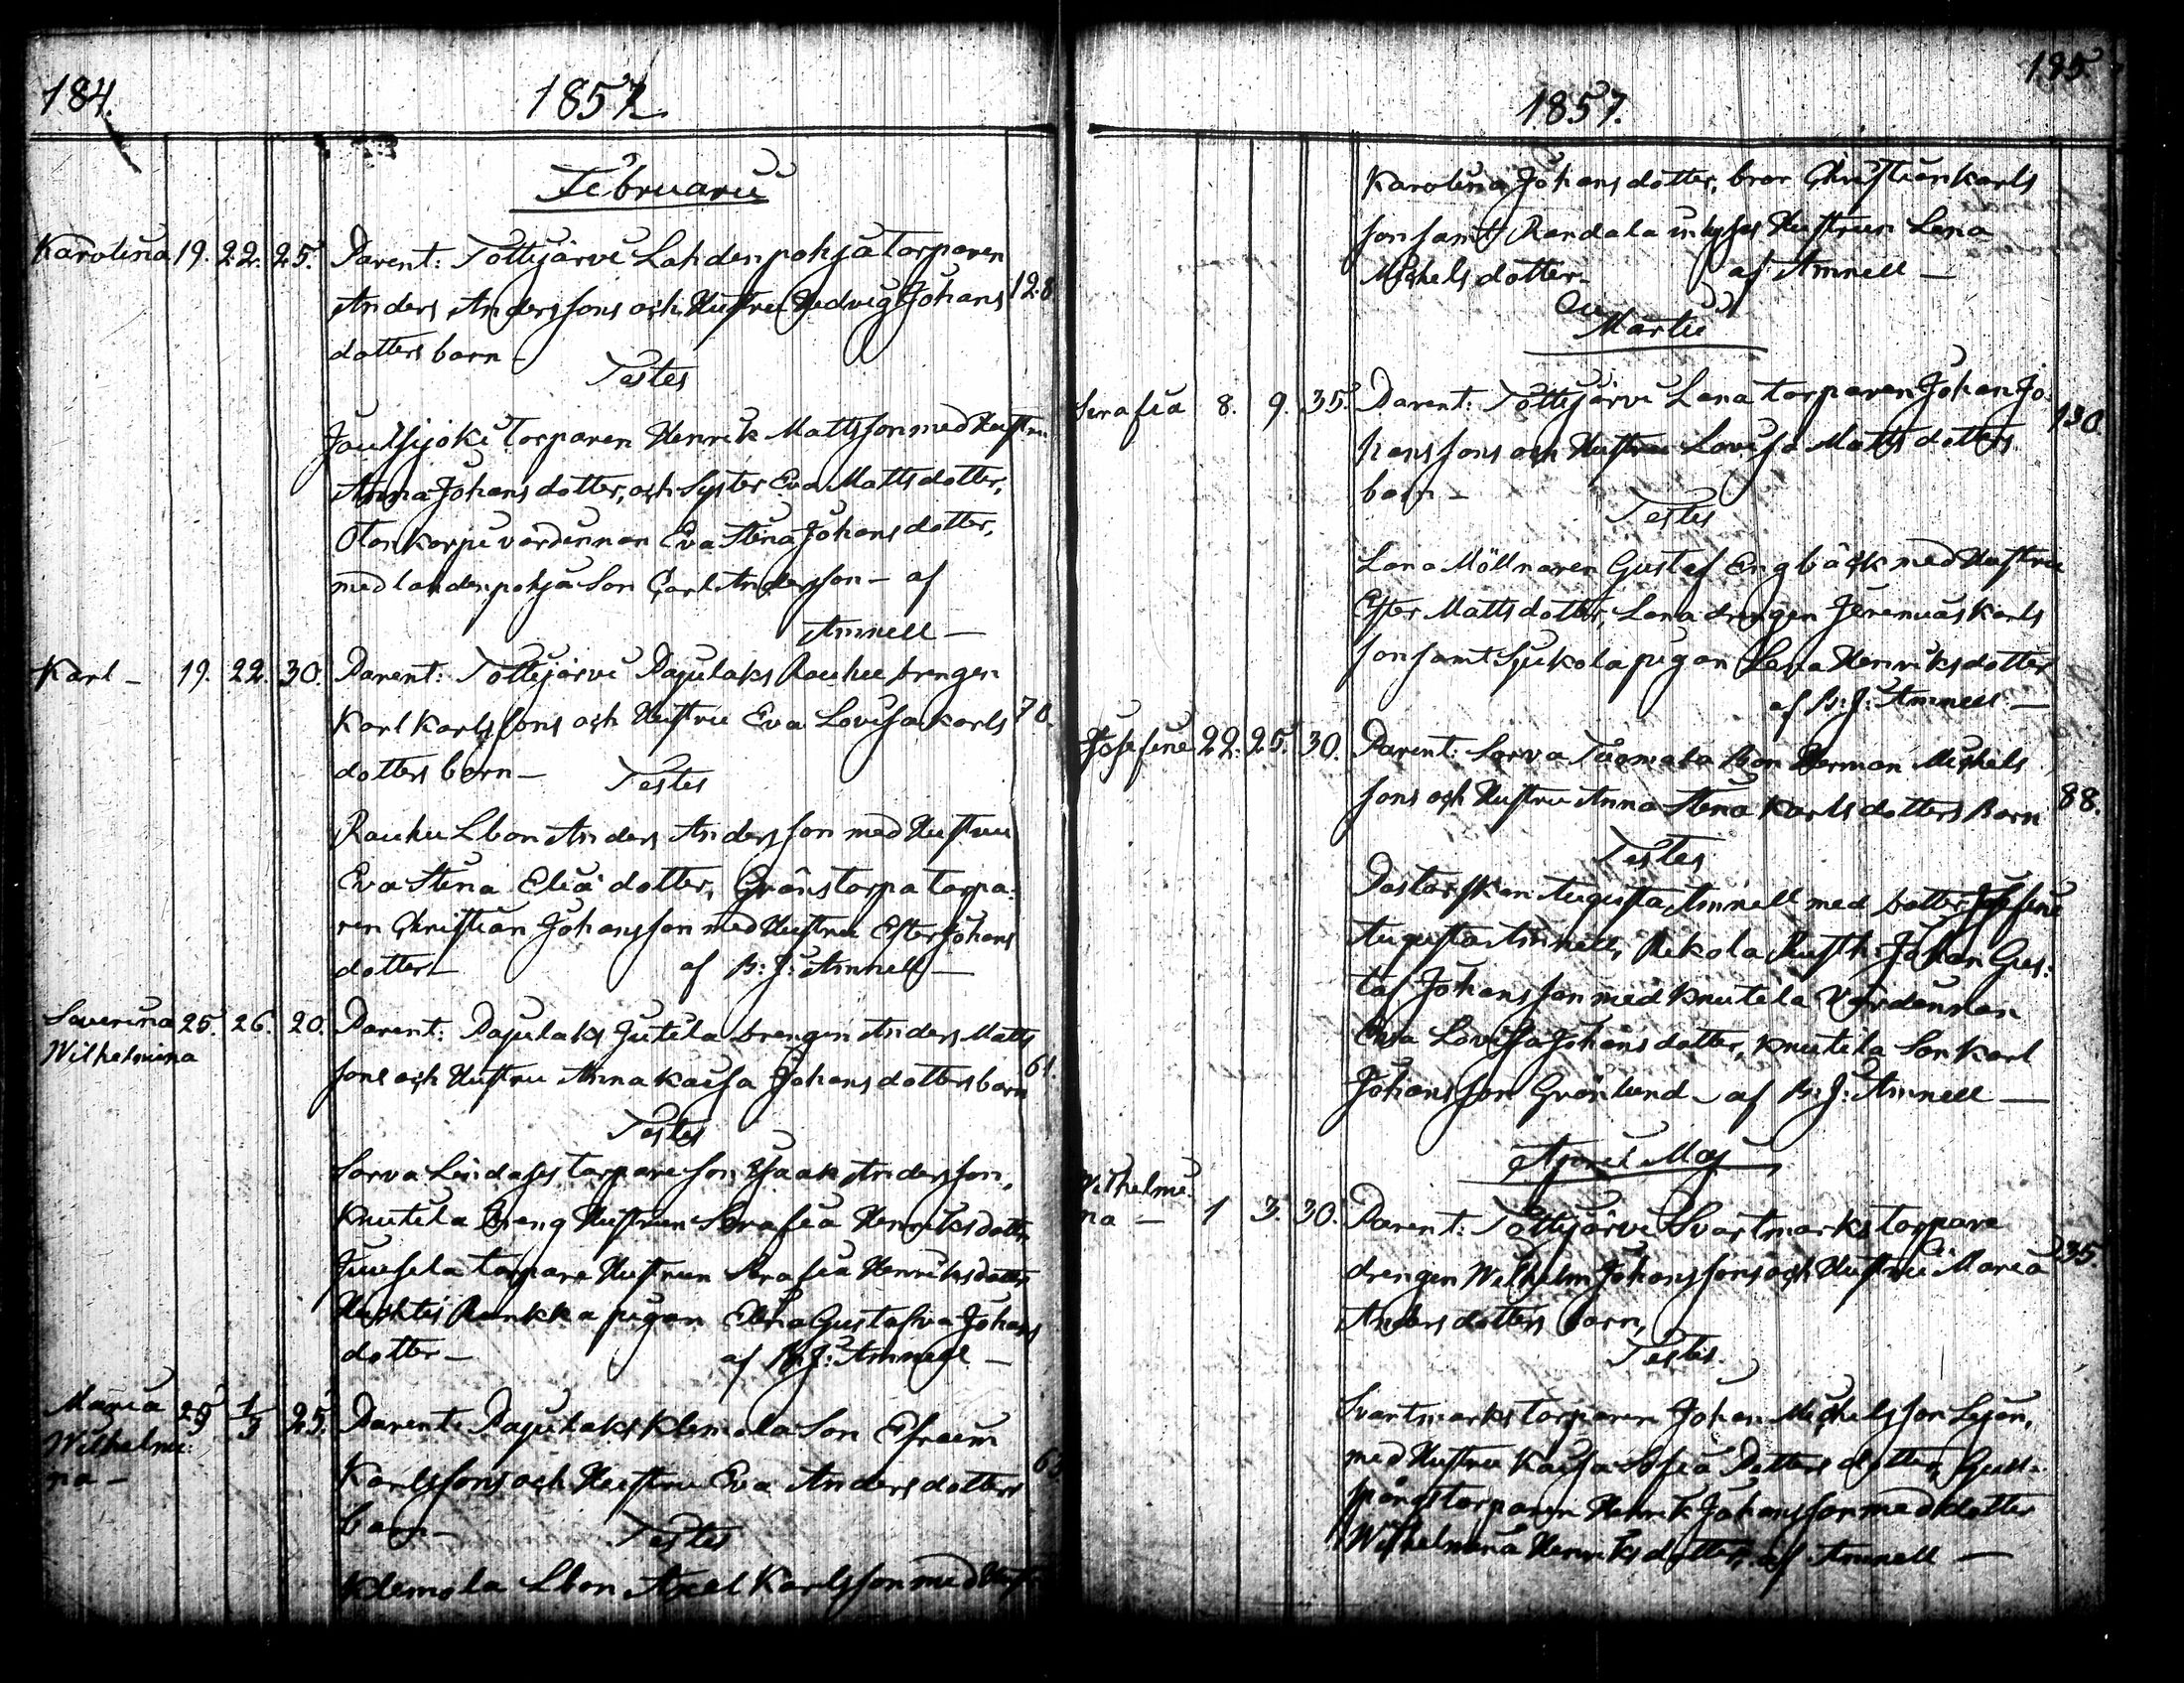 184.
1857.
Februarii
Karolina 19. 22. 25. Parent: Tottijärvi Lahdenpohja torparen
Anders Anderssons och Hustru Hedvig Johans 128
dotters barn –
Testes
Joutsijoki torparen Henrik Mattsson med Hustru
Anna Johansdotter, och Syster Eva Mattsdotter,
värdinnan Eva Stina Johansdotter,
med landenpohja Son Carl Andersson – af
Amnell –
Karl – 19. 22. 30. Parent: Tottijärvi Pajulaks Rauhu drengen
Karl Karlssons och Hustru Eva Lovisa Karls 70.
dotters barn –
Testes
Rauhu Lbon Anders Andersson med Hustru
Eva Stina Eliä dotter, Gränstorpa torpa-
ren Christian Johansson med Hustru Ester Johans
dotter – af B: J: Amnell –
Severina 25. 26. 20. Parent: Pajulaks Jutila drengen Anders Matts
Wilhelmina
sons och Hustru Anna Kaisa Johansdotters barn 61.
Testes
Sorva torpare Son Isaak Andersson,
Knutila Dreng Hustrun Serafia Henriksdotter
Juusela torpare Hustrun Serafia Henriksdotter
Rankka pigan Gustafva Johans
dotter – af B: J: Amnell –
Maria 25 1/3 25. Parent: Pajulaks Klemola Son Efraim
Wilhelmi-
na –
Karlssons och Hustru Eva Andersdotters
barn –
Testes
Klemola Lbon Axel Karlsson med Hustru
185.
1857.
Karolina Johansdotter, bror Christian Karls
son samt Randala inhyses Hustrun Lena
Michelsdotter – af Amnell –
Martii
Serafia 8. 9. 35. Parent: Tottijärvi Lana torparen Johan Jo-
hanssons och Hustru Lovisa Mattsdotters 130
barn –
Testes
Lana Möllnaren Gustaf Engbäck med Hustru
Ester Mattsdotter, Lana drengen Jeremias Karls
son samt Sjukola pigan Lena Henriksdotter
af B: J: Amnell –
Josefine 22. 25. 30. Parent: Sorva Tuomala Bon Herman Michels
sons och Hustru Anna Stina Karlsdotters Barn 88.
Testes
Pastorskan Augusta Amnell med dotter Josefine
Augusta Amnell, Rekola Rusth: Johan Gus-
taf Johansson med Knutila Värdinnan
Eva Lovisa Johansdotter, Knutila Son Karl
Johansson Grönlund – af B: J: Amnell –
April Maj
Wilhelmi-
na – 1 3. 30. Parent: Tottijärvi Svartmarks torpare
drengen Wilhelm Johanssons och Hustru Maria 235.
Andersdotters barn,
Testes.
Svartmarks torparen Johan Michelsson Lejon,
med Hustru Kaisa Sofia Petters dotter,
torparen Henrik Johansson med dotter
Wilhelmina Henriksdotter, af Amnell –